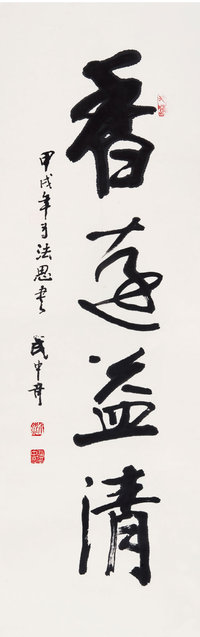 香远益清
甲戌年 法思书 武中奇